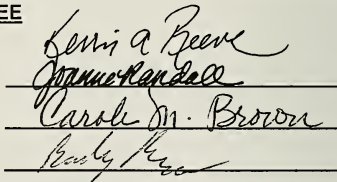 EE
Kevin A Reeve
Joanne Randall
Carole M. Brown